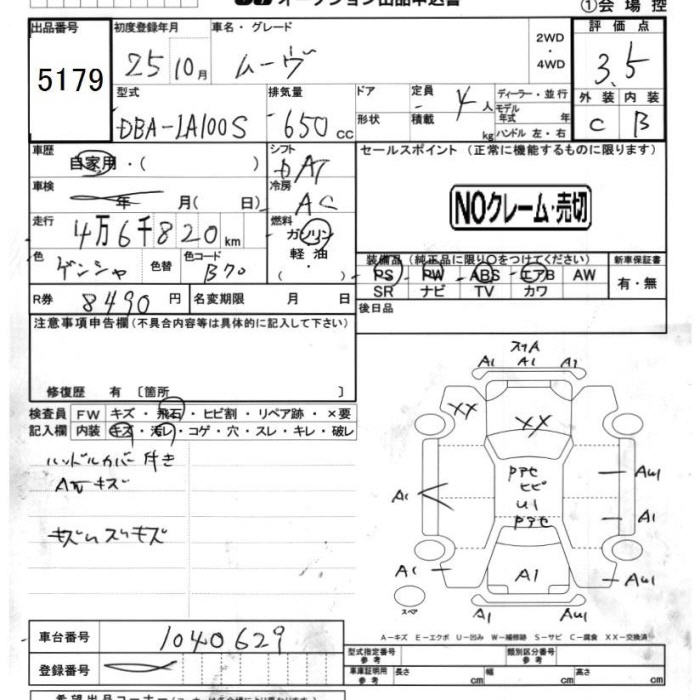 オークション出品申込書
①会場控
出品番号 初度登録年月 車名・グレード 評価点
5179 25 10月 ムーヴ 2WD・4WD 3.5
外装 内装
C B
型式 排気量 ドア 定員 4人 ディーラー・並行
DBA-LA100S 650cc 形状 積載 kg モデル年式 年
ハンドル 左・右
車歴 シフト セールスポイント (正常に機能するものに限ります)
自家用・( ) AT
車検 年 月( 日) 冷房 AC
NOクレーム・売切
走行 4万6千820km 燃料 ガソリン
軽油
・( )
色 ゲンシャ 色替 色コード B70
装備品(純正品に限り○をつけてください) 新車保証書
PS PW ABS エアB AW 有・無
SR ナビ TV カワ
R券 8490円 名変期限 月 日 後日品
注意事項申告欄(不具合内容等は具体的に記入して下さい)
修復歴 有 〔箇所 〕
検査員 FW キズ・飛石・ヒビ割・リペア跡・×要
記入欄 内装 キズ・汚レ・コゲ・穴・スレ・キレ・破レ
ハンドルカバー付き
キズ
キズ スリキズ
スリA
A1 A1 A1
XX XX
ヒビ
U1
A1
AU1
A1
A1 A1 AU1
スペア A1 AU1
A-キズ E-エクボ U-凹み W-補修跡 S-サビ C-腐食 XX-交換済
車台番号 1040629
型式指定番号 参考 類別区分番号 参考
登録番号
車庫証明用 参考 長さ cm 幅 cm 高さ cm